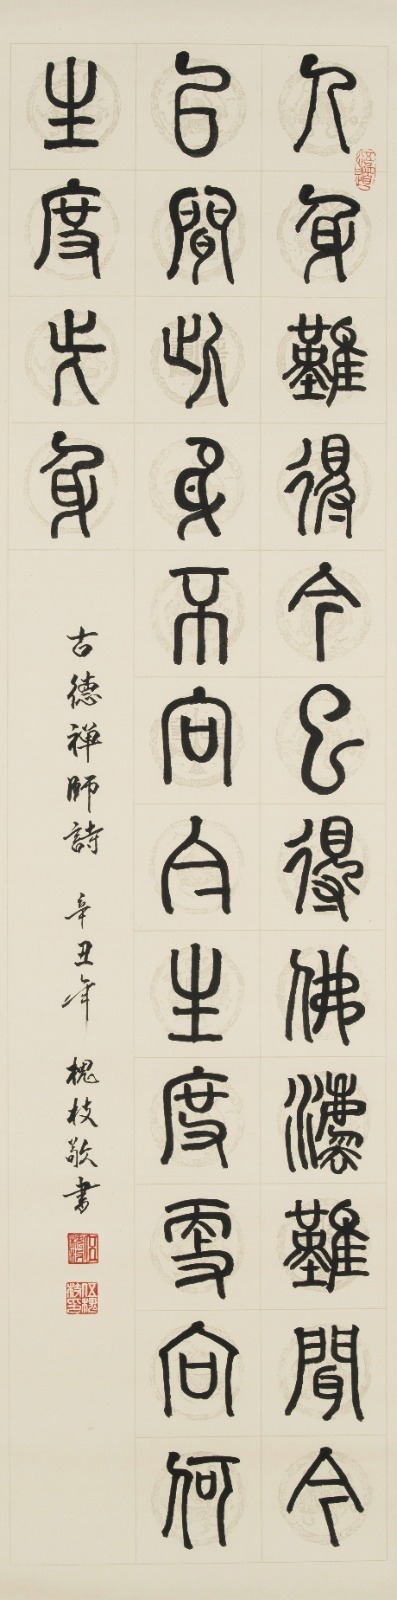 人身難得今已得佛灋難聞今
已聞此身不向今生度更向何
生度此身
古德禅師詩 辛丑年 槐枝敬書